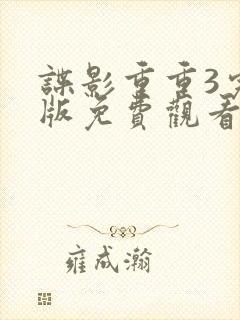 諜影重重3
版免費觀看
雍成瀚